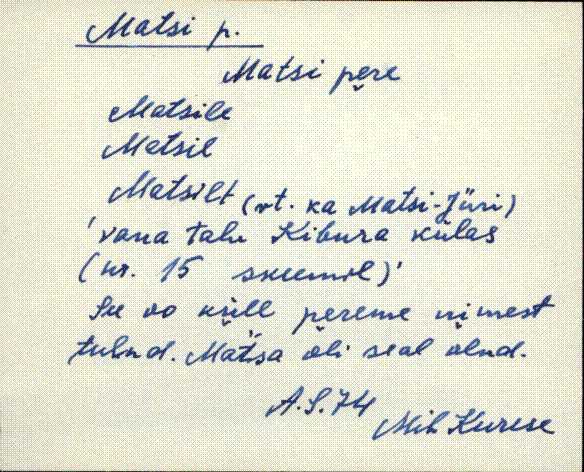 Matsi p.
Matsi pere
Matsile
Matsil
Matsilt (vt. ka Matsi-Jüri)
'vana talu Kibura külas
(nr. 15 skeemil)'
See oo küll pereme nimest
tulnd. Matsa oli seal olnd.
A.S.74
Mih Kurese